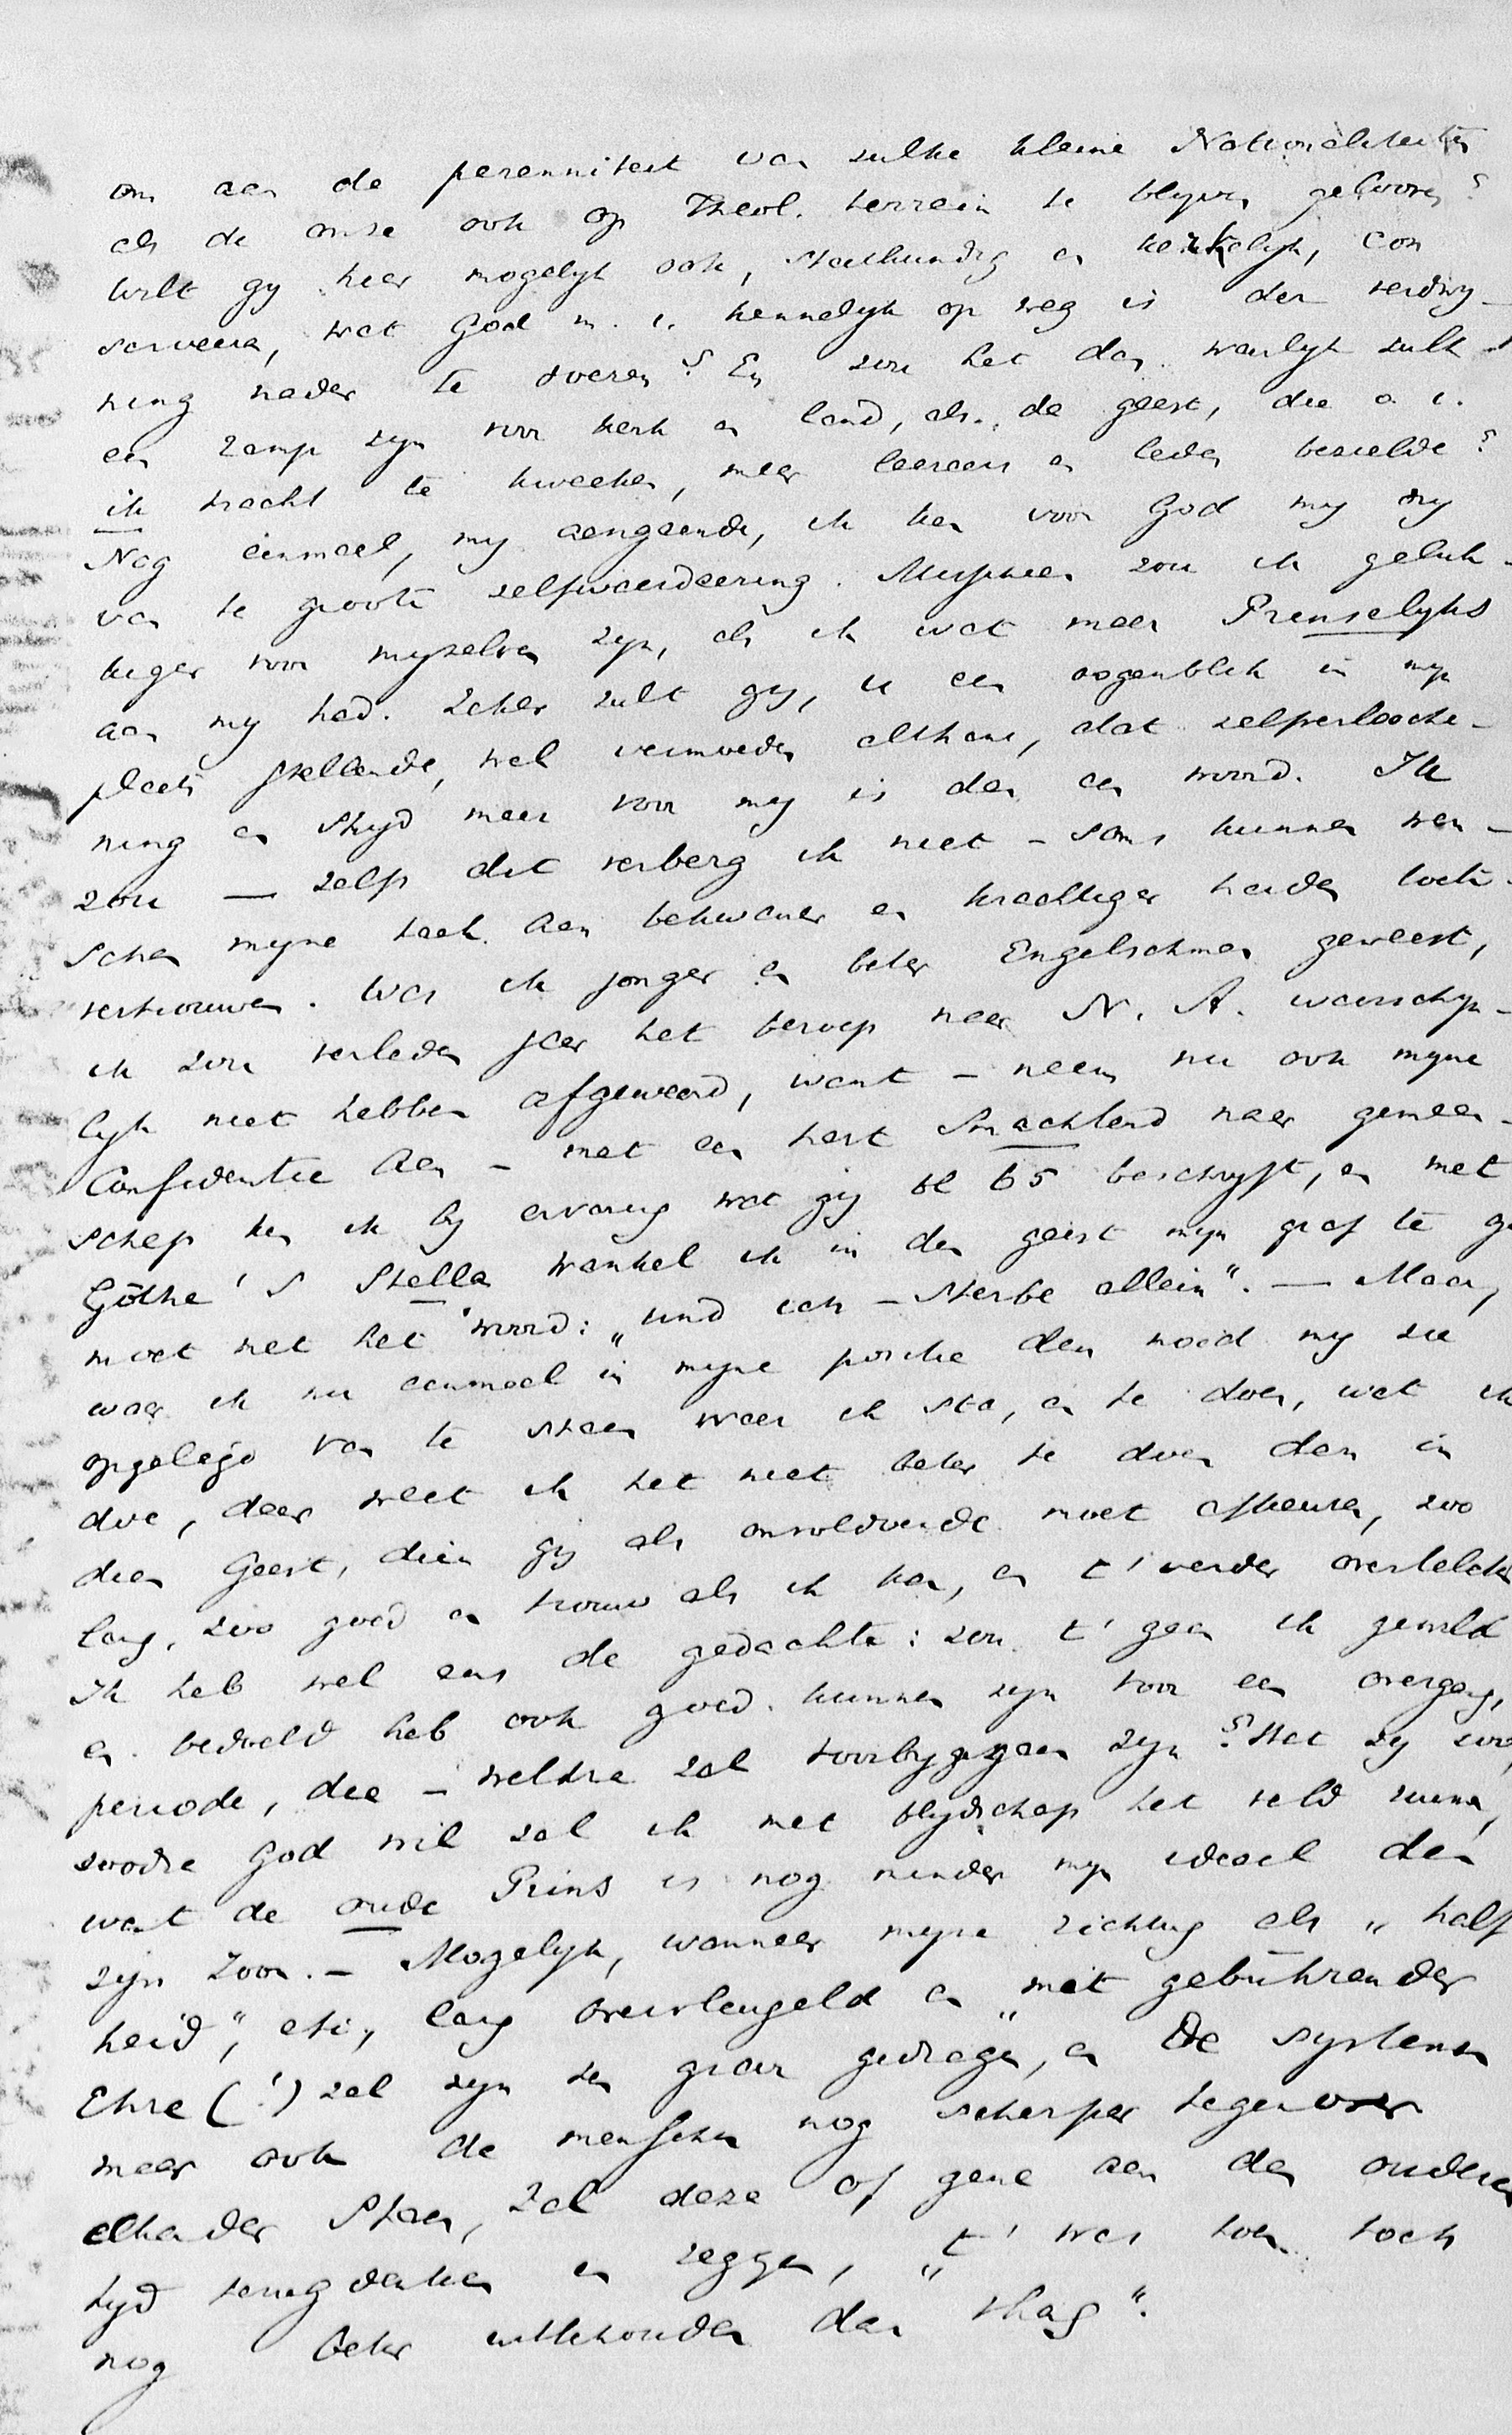 om aan de perenniteit van zulke kleine Nationaliteiten
als de onze ook op Theol. terrein te blyven gelooven?
Wilt gy hier mogelyk ook, staatkundig en kerkelyk, con
serveren, wat God m. i. kennelyk op weg is der verdwy-
ning nader te voeren? En zou het dan waarlyk zulk
een ramp zyn voor kerk en land, als de geest, die o. i.
ik tracht te kweeken, meer leeraars en leden bezielde?
Nog eenmaal, my aangaande, ik ken voor God my vry
van te groote zelfwaardeering. Misschien zou ik geluk-
kiger voor myzelven zyn, als ik wat meer Prinselyks
aan my had. Zeker zult gy, u een oogenblik in myn
plaats stellende, wel vermoeden althans, dat zelfverlooche-
ning en stryd meer voor my is dan een woord. Ik
zou — zelfs dit verberg ik niet - soms kunnen wen-
schen myne taak aan bekwamer en krachtiger handen toete-
vertrouwen. Was ik jonger en beter Engelschman geweest,
ik zou verleden jaar het beroep naar N. A. waarschyn-
lyk niet hebben afgewend, want - neem nu ook myne
Confidentie aan - met een hart smachtend naar gemeen-
schap ken ik by ervaring wat gij bl 65 beschryft, en met
Göthe's Stella wankel ik in den geest myn graf te ge
moet met het woord: „und ich - sterbe allein". — Maar,
waar ik nu eenmaal in myne positie den nood my zie
opgelegd van te staan waar ik sta, en te doen, wat ik
doe, daar weet ik het niet beter te doen dan in
dien Geest, dien gij als onvoldoende moet afkeuren, zoo
lang, zoo goed en trouw als ik kan, en t' verder overtelaten
Ik heb wel eens de gedachte: zou t' geen ik gewild
en bedoeld heb ook goed kunnen zyn voor een overgangs,
periode, die - weldra zal voorbygegaan zyn? Het zy zoo,
zoodra God wil zal ik met blydschap het veld ruimen,
want de oude Prins is nog minder myn ideaal dan
zyn Zoon. - Mogelyk, wanneer myne richting als „half
heid", etc., lang overvleugeld en „mit gebührender
Ehre (!) zal zyn ten grave gedragen, en de systemen
maar ook de menschen nog scherper tegenover
elkander staan, zal deze of gene aan den ouderen
tyd terugdenken en zeggen, „t' was toen toch
nog beter uittehouden dan thans".